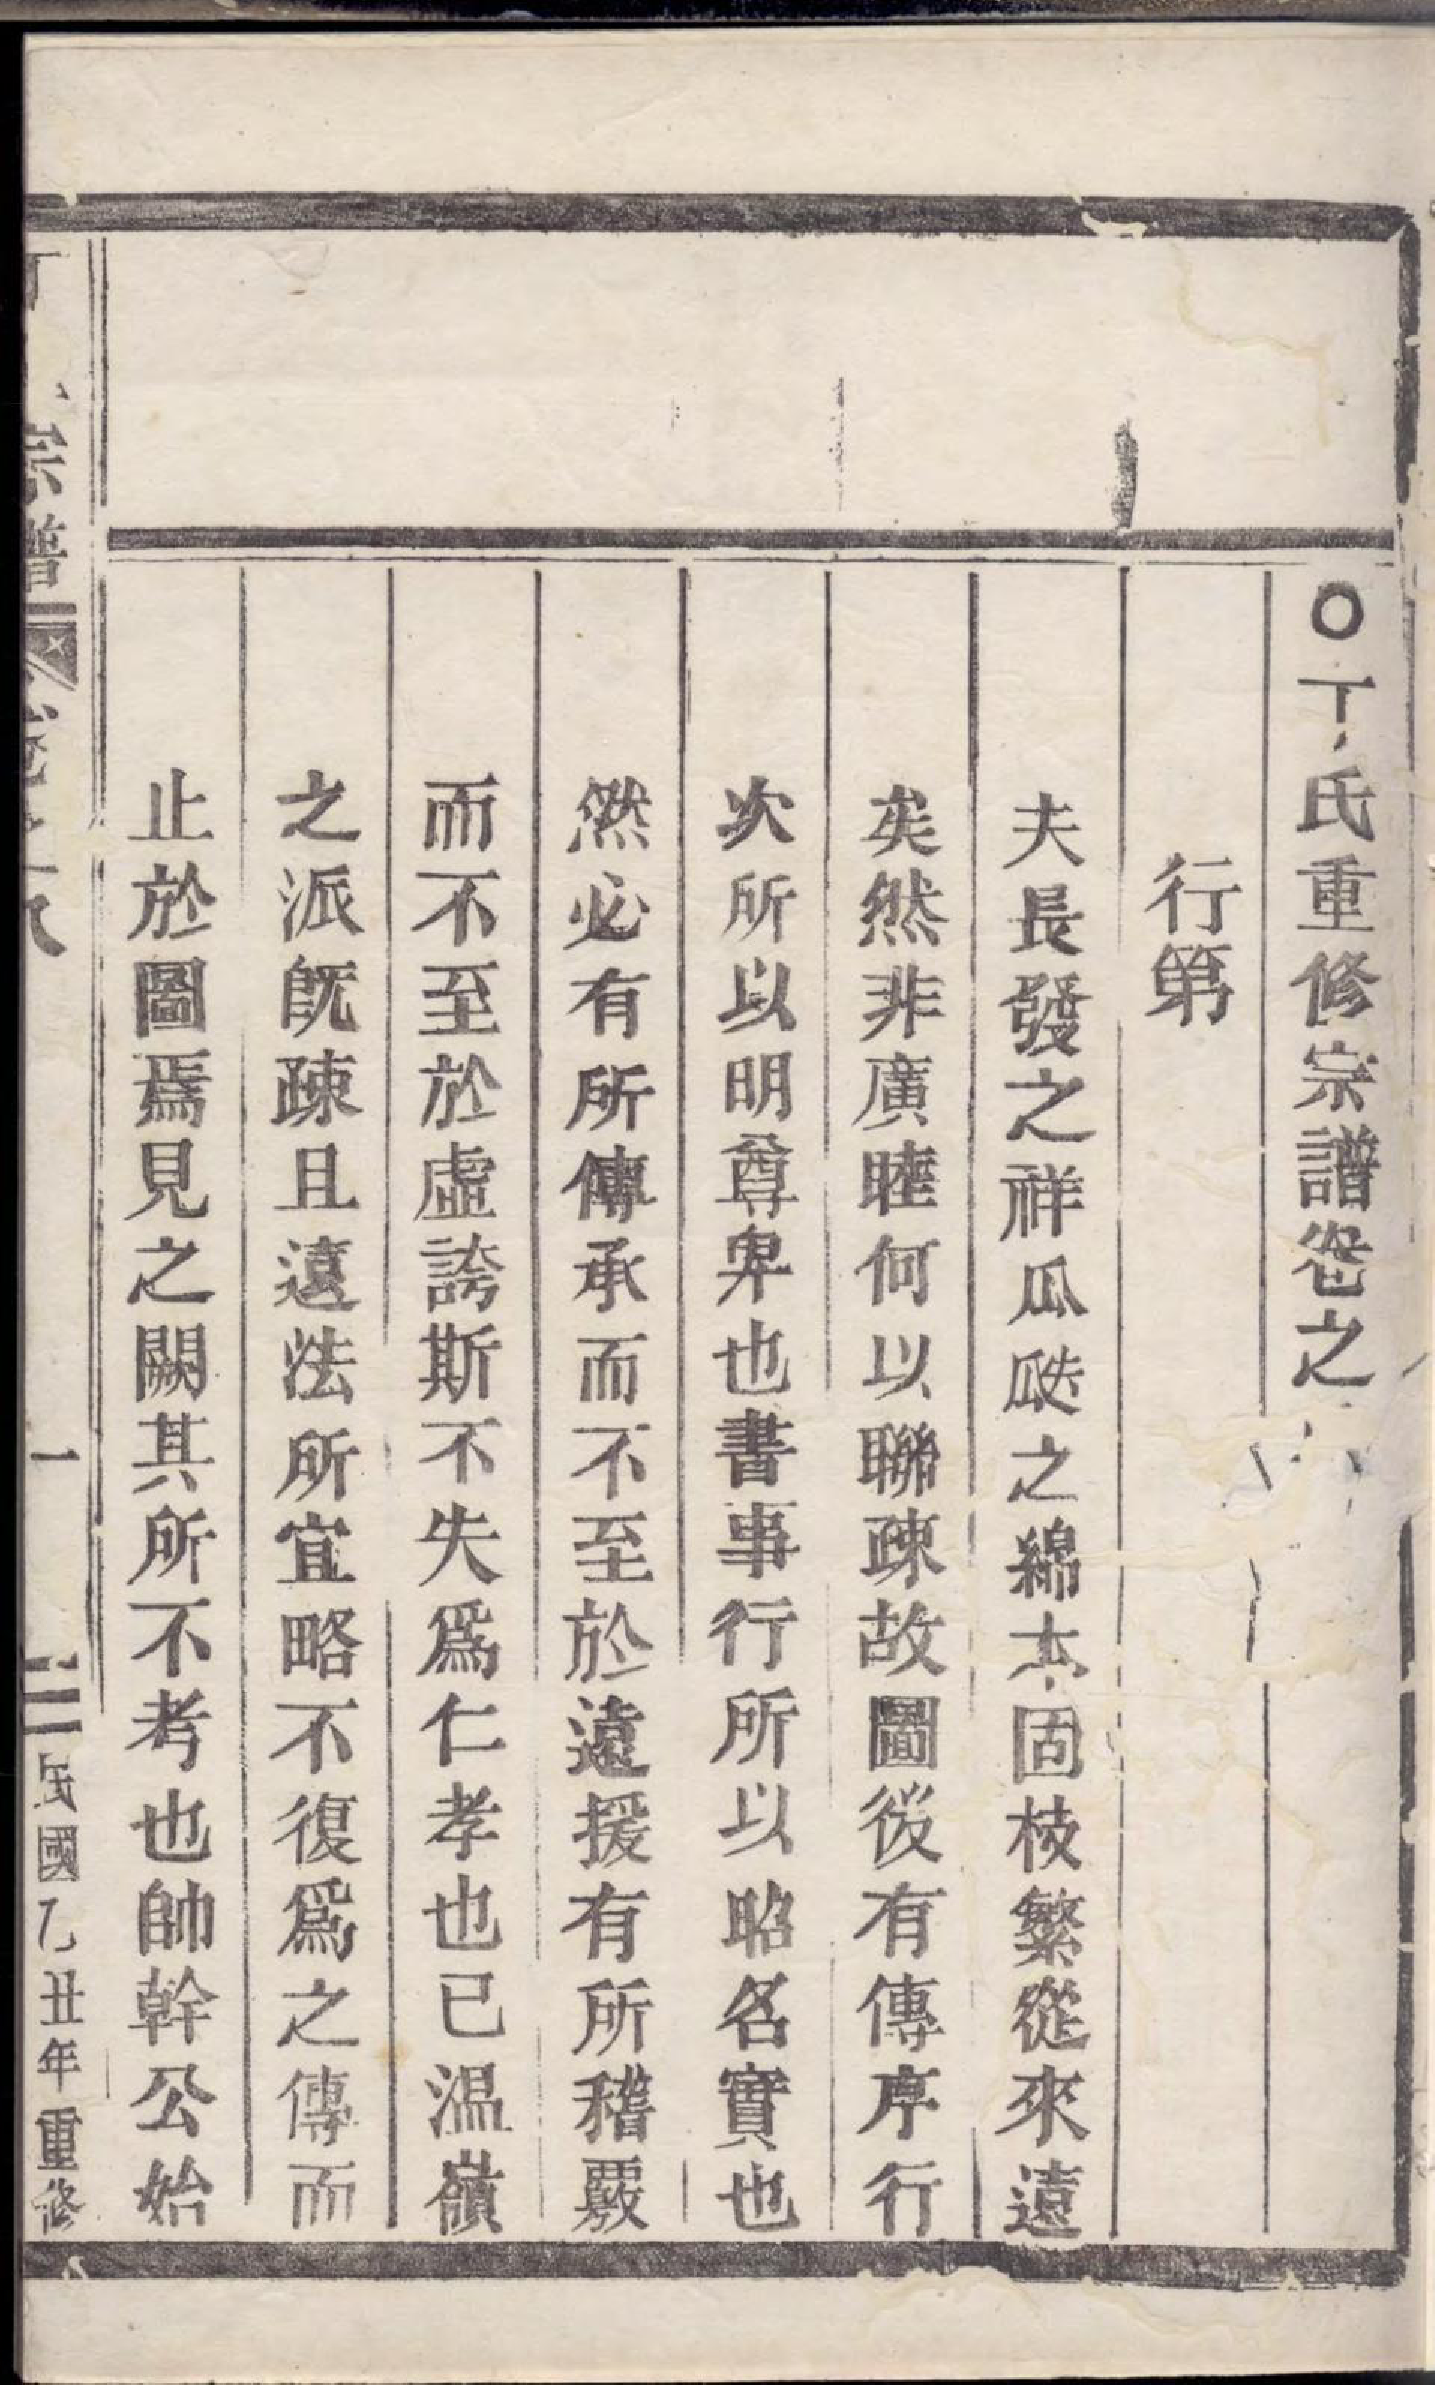 ○丁氏重修宗譜卷之
行第
夫長發之祥瓜瓞之綿本固枝繁從來遠
矣然非廣睦何以聯疎故圖後有傳序行
次所以明尊卑也書事行所以昭名實也
然必有所傳承而不至於遠援有所稽覈
而不至於虛誇斯不失爲仁孝也已溫嶺
之派旣疎且遠法所宜略不復爲之傳而
止於圖焉見之闕其所不考也帥幹公始
丁氏宗譜 卷之八 一 民國乙丑年重修